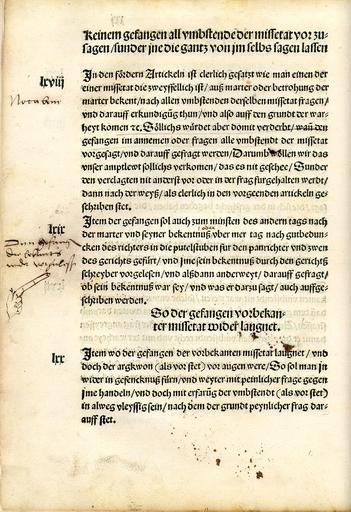 Keinem gefangen all vmbstende der missetat vor zu-
sagen/sunder jne die gantz von jm selbs sagen lassen
lxviij
In den fördern Artickeln ist clerlich gesatzt wie man einen der
einer missetat die zweyffellich ist/ auß marter oder betrohung der
marter bekent/ nach allen vmbstenden derselben missetat fragen/
vnd darauff erkundigūg thun/ vnd also auff den grundt der war-
heyt komen ꝛc. Söllichs würdet aber domit verderbt/ wañ den
gefangen in annemen oder fragen alle vmbstendt der missetat
vorgesagt/ vnd darauff gefragt werden/ Darumb wöllen wir das
vnser amptlewt söllichs verkomen/ das es nit geschee/ Sunder
den verclagten nit anderst vor oder in der frag fürgehalten werd/
dann nach der weyß/ als clerlich in den vorgeenden artickeln ge-
schriben stet.
Notabene
lxix
Item der gefangen sol auch zum minsten des andern tags nach
der marter vnd seyner bekentnuß/ aber mer tag nach gutbedun-
oder
cken des richters in die putelstuben für den panrichter vnd zwen
des gerichts gefürt/ vnd jme sein bekentnuß durch den gerichtß
schreyber vorgelesen/ vnd alßdann anderweyt/ darauff gefragt/
ob sein bekentnuß war sey/ vnd was er darzu sagt/ auch auffge-
schriben werden.
So der gefangen vorbekan-
ter missetat wider laugnet.
lxx
Item wo der gefangen der vorbekanten missetat laugnet/ vnd
doch der argkwon (als vor stet) vor augen were/ So sol man jn
wider in gefencknuß fürn/ vnd weyter mit peinlicher frage gegen
jme handeln/ vnd doch mit erfarūg der vmbstendt (als vor stet)
in alweg vleyssig sein/ nach dem der grundt peynlicher frag dar-
auff stet.